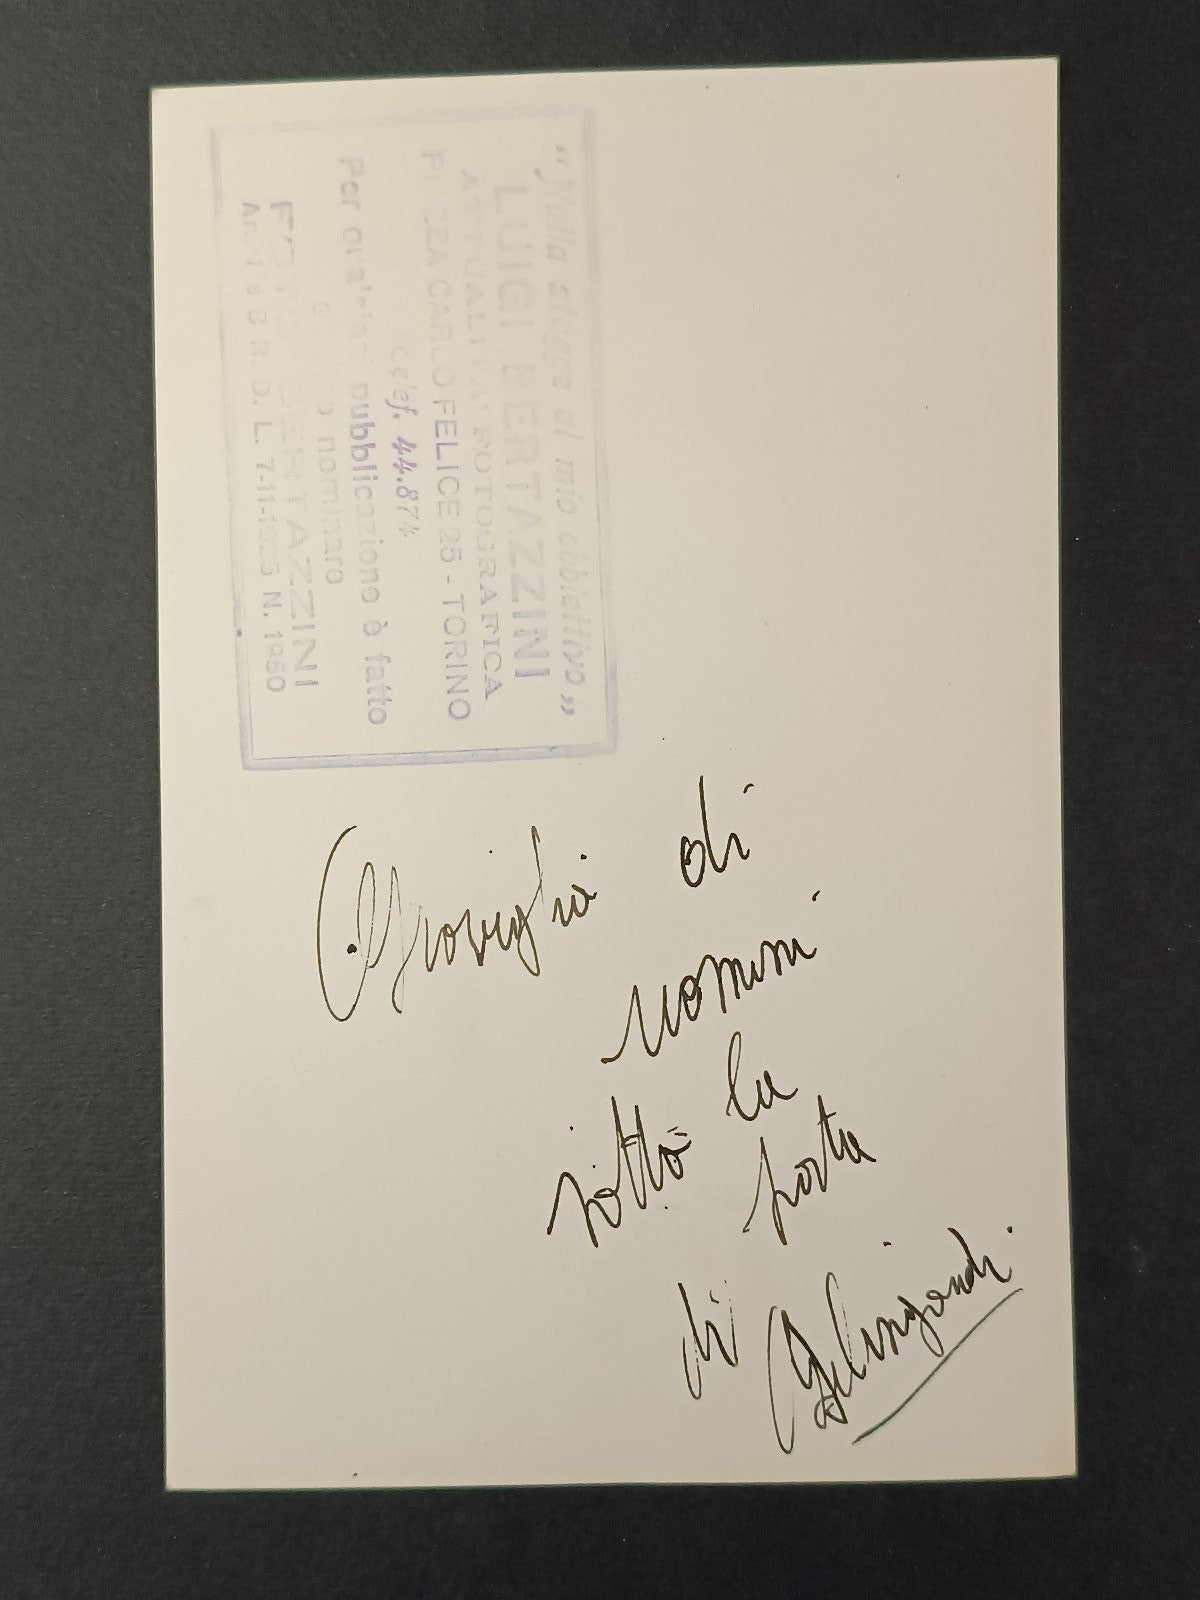 “Nulla sfugge al mio obbiettivo„
LUIGI BERTAZZINI
ATTUALITA' FOTOGRAFICA
PIAZZA CARLO FELICE 25 - TORINO
Telef. 44.874
Per qualsiasi pubblicazione è fatto
obbligo nominare
FOTO BERTAZZINI
Ar. 1 e 8 R. D. L. 7-11-1925 N. 1950
Groviglio di
uomini
sotto la
porta
di